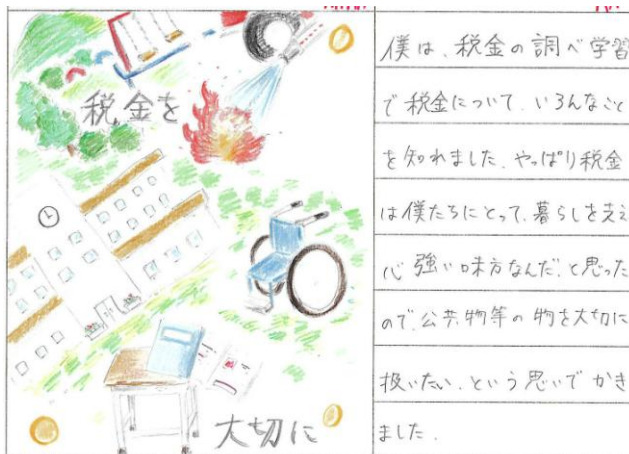 税金を
大切に
僕は、税金の調べ学習
で税金について、いろんなこと
を知れました。やっぱり税金
は僕たちにとって、暮らしを支え
心強い味方なんだ、と思った
ので、公共物等の物を大切に
扱いたい、という思いでかき
ました。